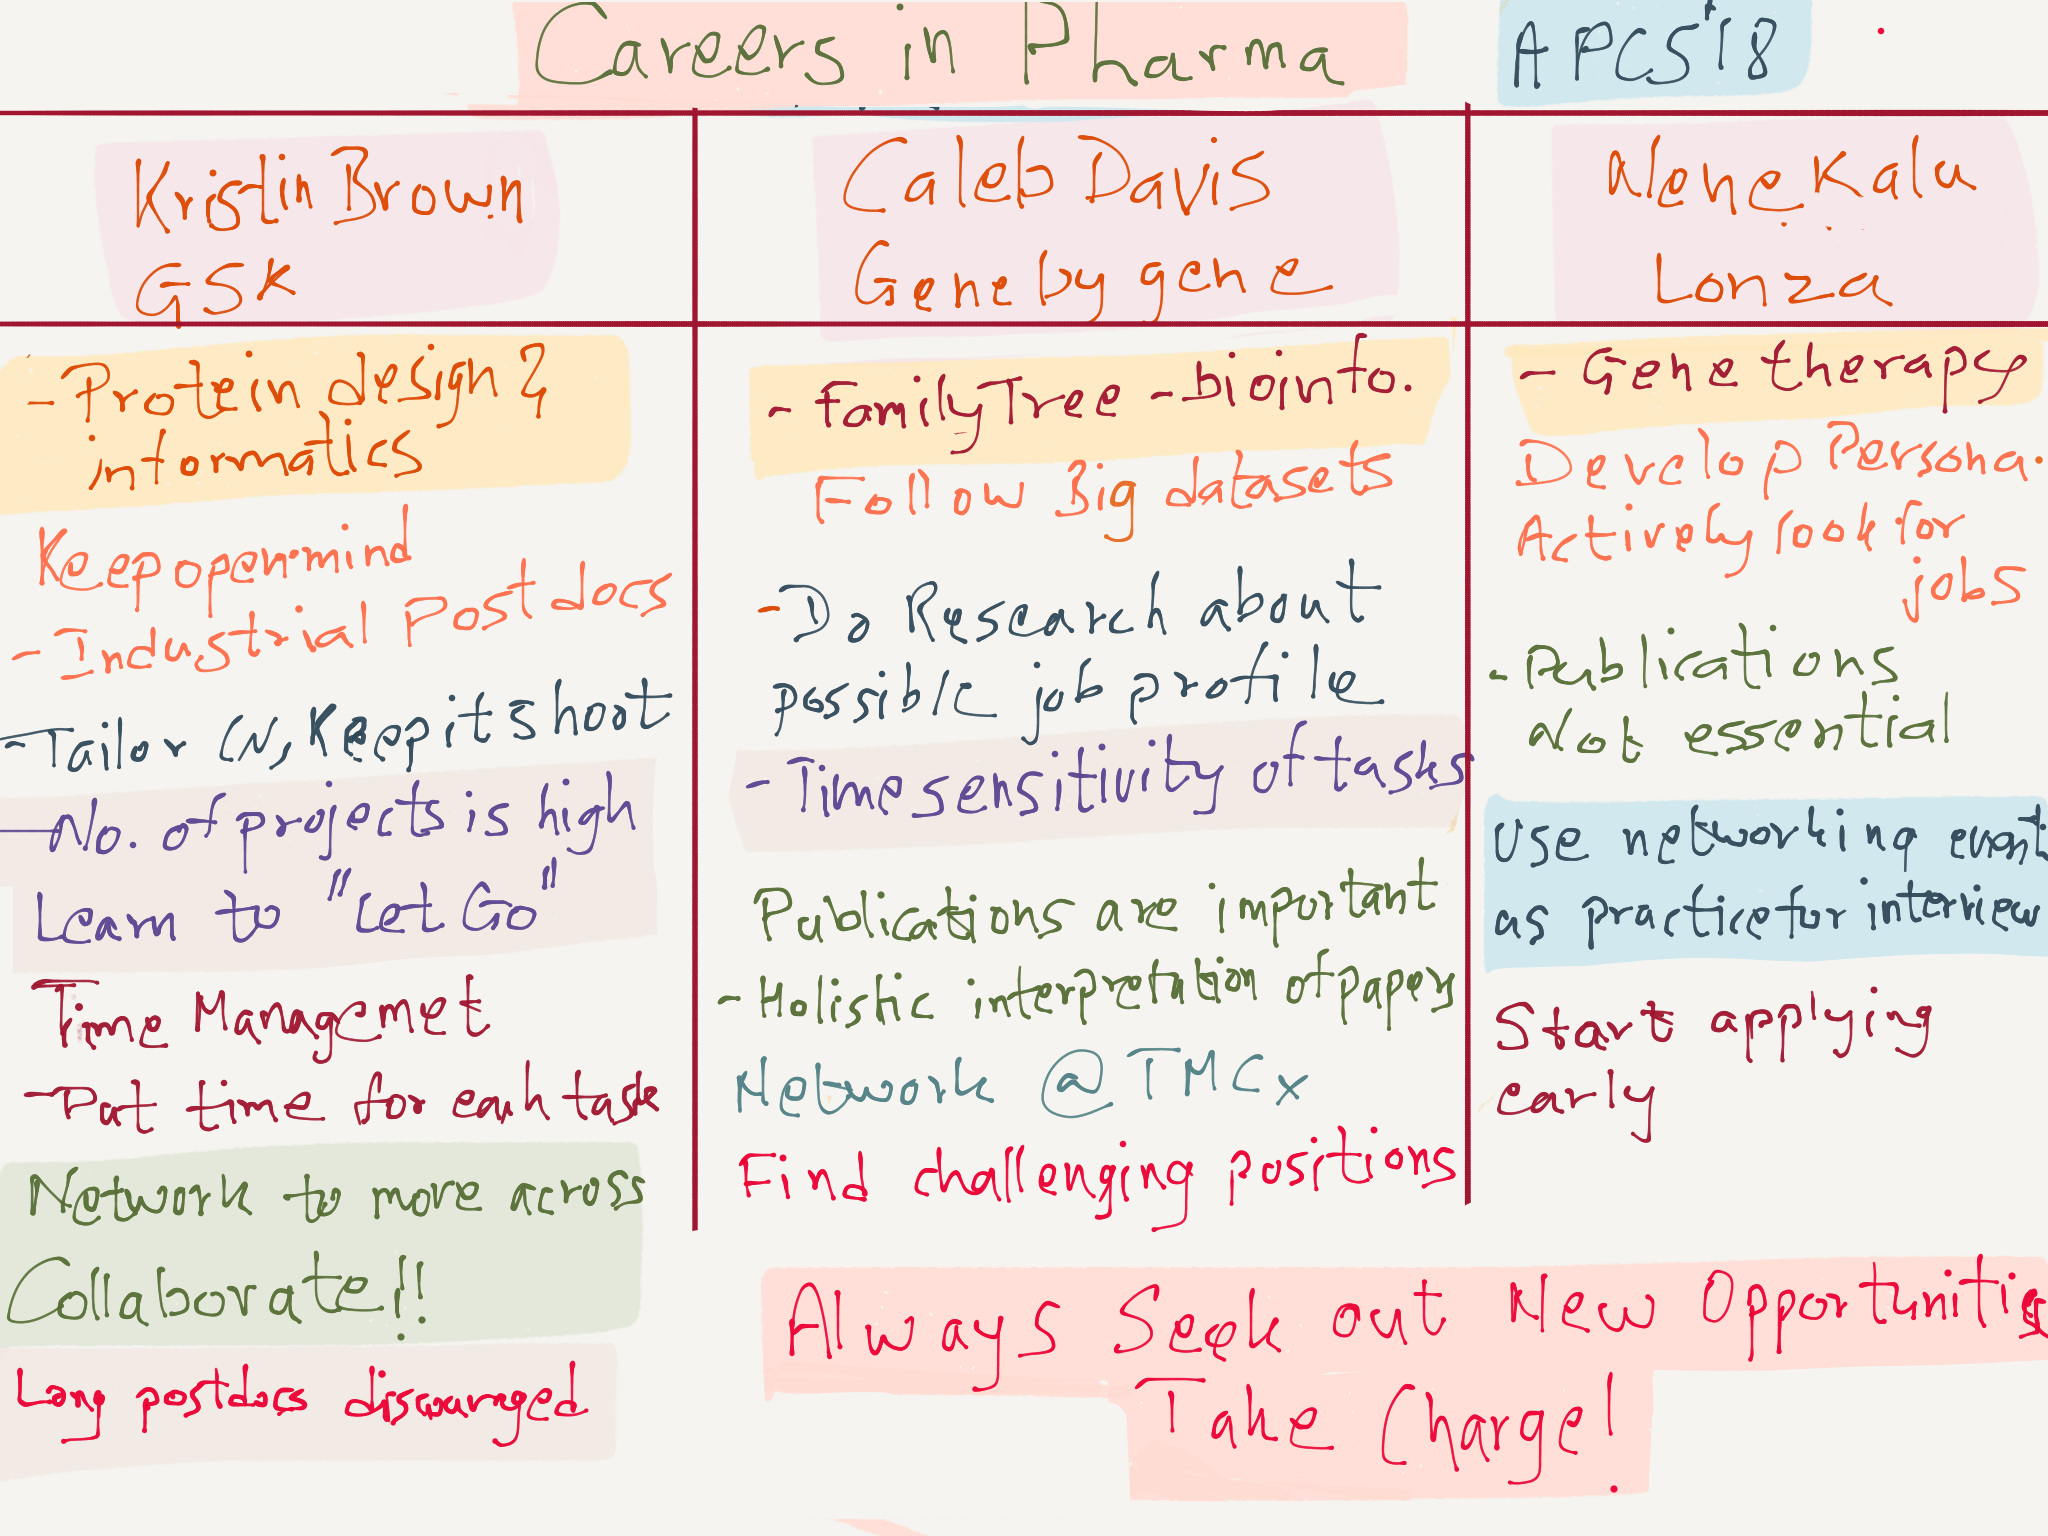 Careers in Pharma
APCS'18
Kristin Brown
GSK
- Protein design &
informatics
Keep open-mind
- Industrial Postdocs
- Tailor CV, Keep it short
- No. of projects is high
Learn to "Let Go"
Time Managemet
- Put time for each task
Network to more across
Collaborate!!
Long postdocs discouraged
Caleb Davis
Gene by gene
- FamilyTree - bioinfo.
Follow Big datasets
- Do Research about
possible job profile
- Time sensitivity of tasks
Publications are important
- Holistic interpretation of papers
Network @ TMCx
Find challenging positions
Nene Kalu
Lonza
- Gene therapy
Develop Persona.
Actively look for
jobs
- Publications
Not essential
Use networking event
as practice for interview
Start applying
early
Always Seek out New Opportunities
Take Charge!